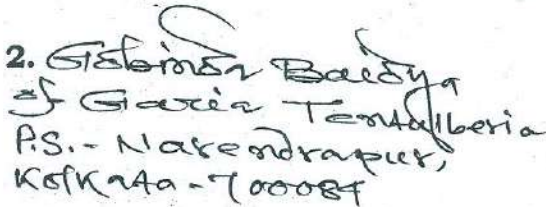 2. Gobinda Baidya
of Garia Tentulberia
P.S. - Narendrapur,
Kolkata - 700084